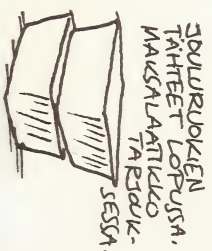 JOULURUOKIEN
TÄHTEET LOPUSSA.
MAKSALAATIKKO
TARJOUK-
SESSA.